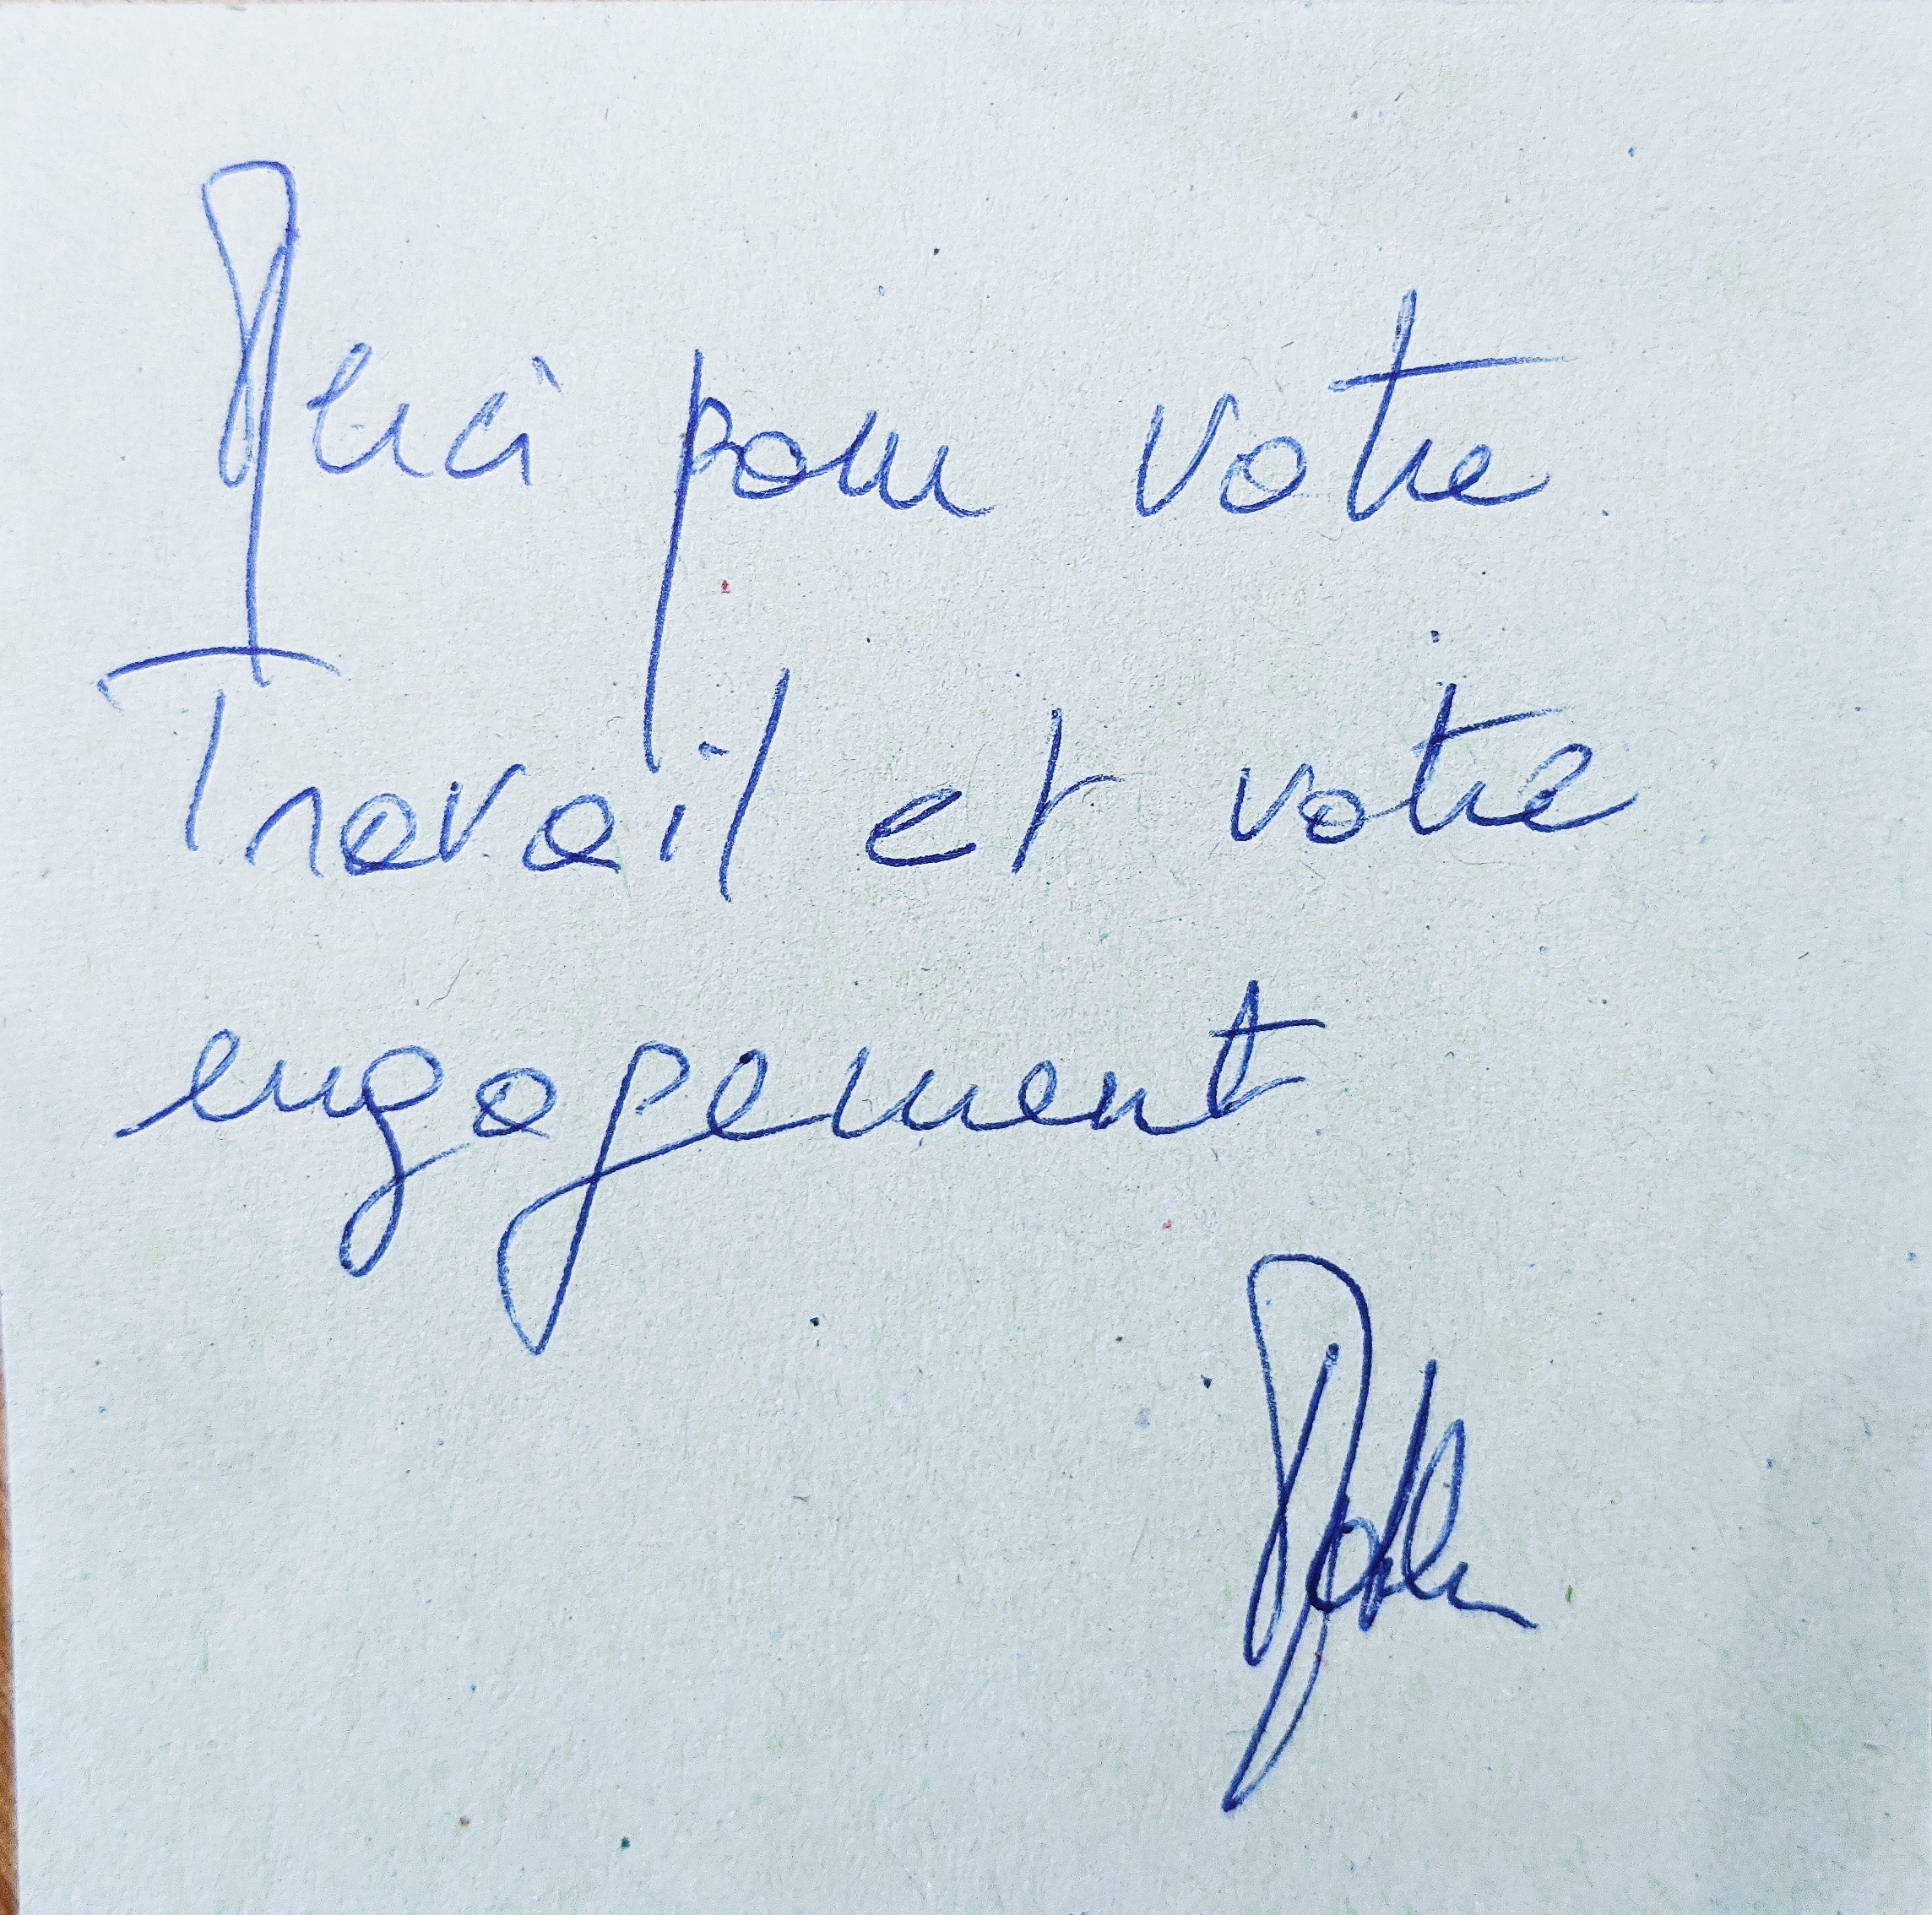 Merci pour votre
Travail et votre
engagement